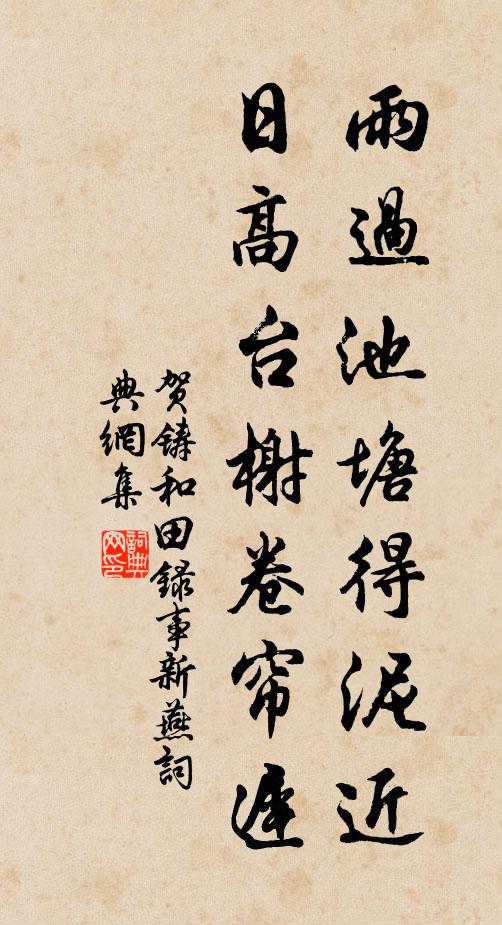 雨過池塘得泥近
日高台榭卷帘遲
贺鑄和田録事新燕詞
典網集
詞典网印